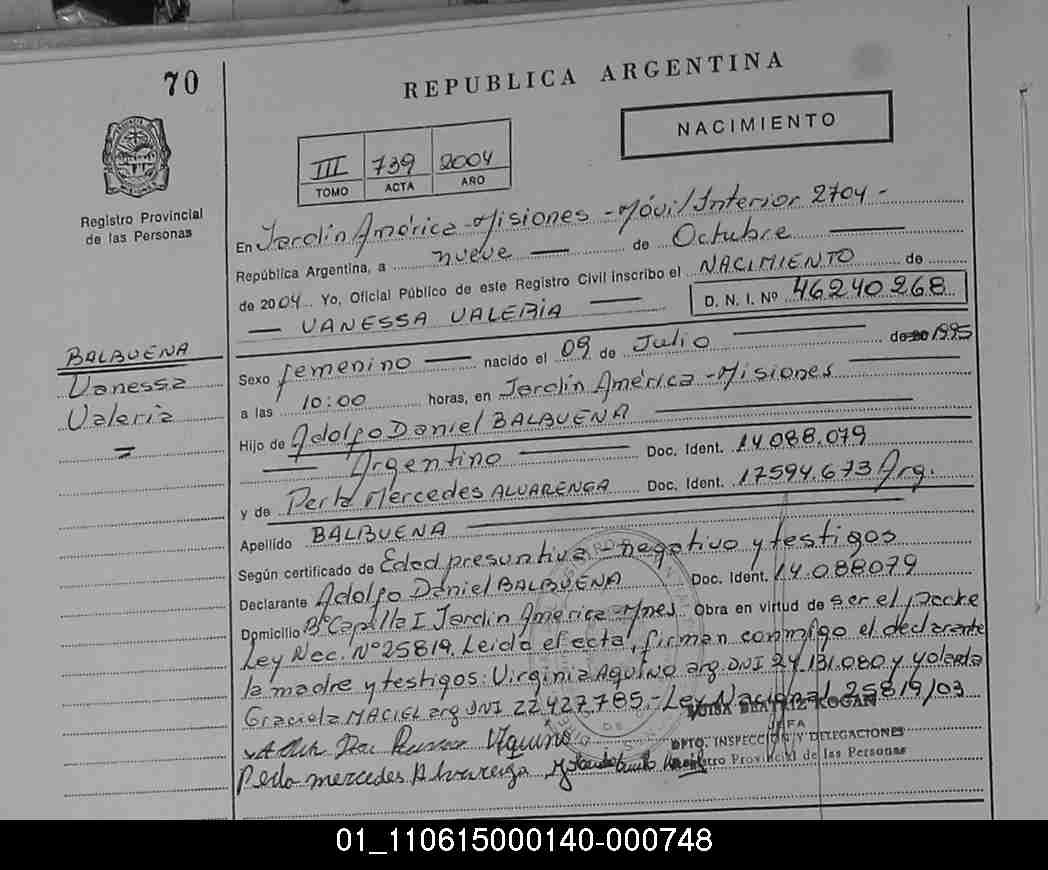 70
REPUBLICA ARGENTINA
NACIMIENTO
III 739 2004
TOMO ACTA AÑO
Registro Provincial
de las Personas
En Jardín América - Misiones - Móvil Interior 2704 -
República Argentina, a nueve — de Octubre —
de 2004 Yo, Oficial Público de este Registro Civil inscribo el NACIMIENTO de
— VANESSA VALERIA — D. N. I. Nº 46240268
BALBUENA
Vanessa
Valeria
=
Sexo femenino — nacido el 09 de Julio — de 1995
a las 10:00 horas, en Jardín América - Misiones —
Hijo de Adolfo Daniel BALBUENA —
— Argentino — Doc. Ident. 14.088.079
y de Perla Mercedes ALVARENGA Doc. Ident. 17594.673 Arg.
Apellido BALBUENA —
Según certificado de Edad presuntiva - negativo y testigos
Declarante Adolfo Daniel BALBUENA Doc. Ident. 14.088079
Domicilio Bº Capilla I Jardín América - Mnes. Obra en virtud de ser el padre
Ley Nac. Nº 25819. Leída el acta, firman conmigo el declarante
la madre y testigos: Virginia Aquino arg. DNI 24.131.080 y Yolanda
Graciela MACIEL arg DNI 22.427.785.- Ley Nacional 25819/03
BEATRIZ KOGAN
JEFA
DPTO. INSPECCIÓN Y DELEGACIONES
Registro Provincial de las Personas
Aquino
Perla mercedes Alvarenga
01_110615000140-000748